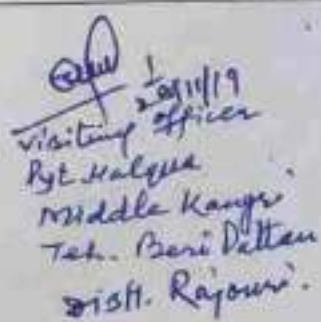 29/11/19
Visiting Officer
Pyt Halqua
Middle Kangri
Teh. Beri Pattan
Distt. Rajouri.